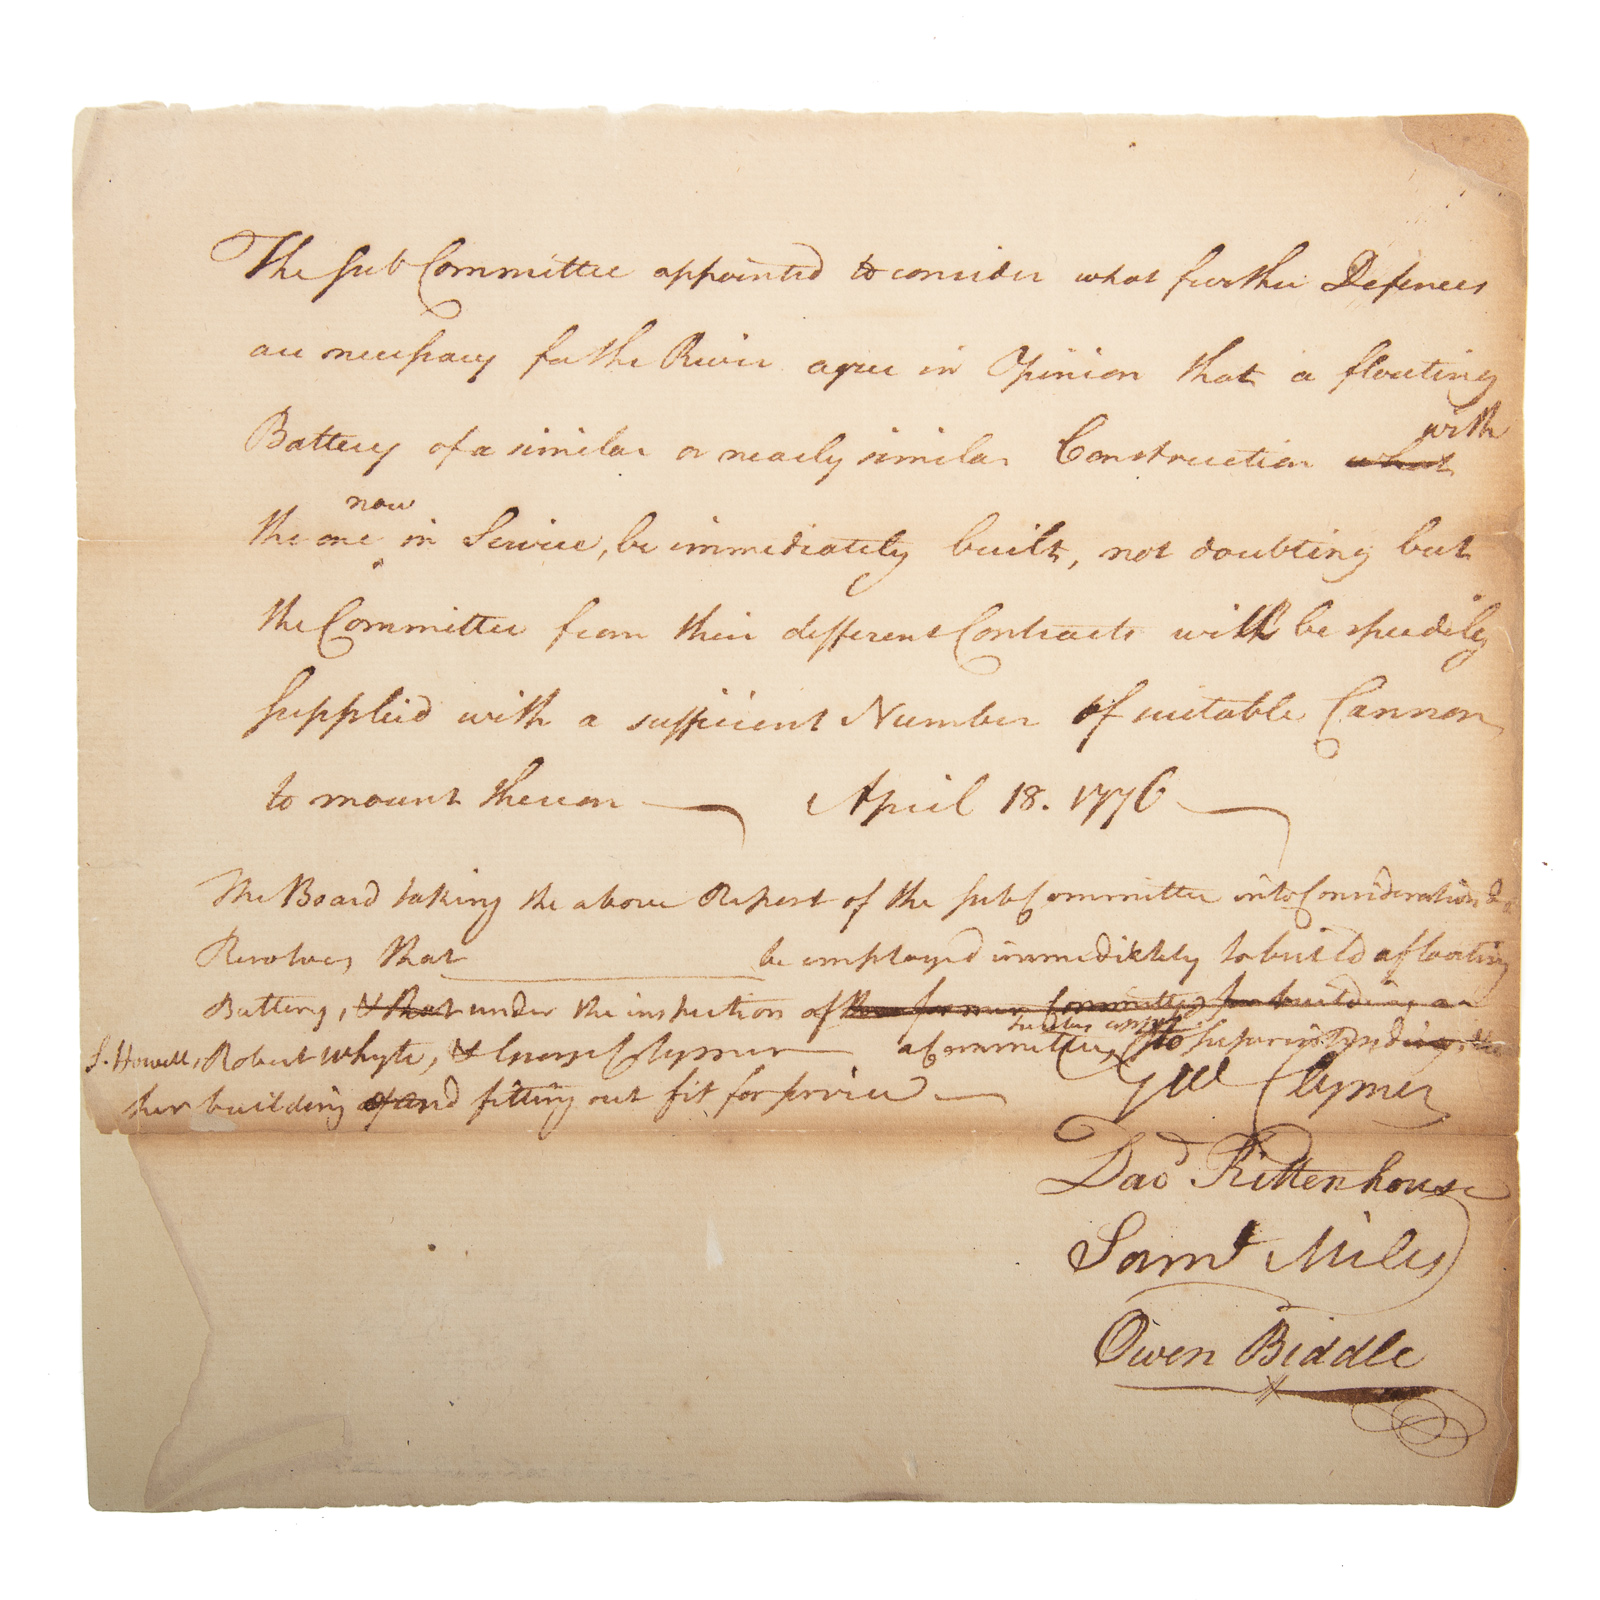 The Sub Committee appointed to consider what further Defences
are necessary for the River agree in Opinion that a floating
Battery of a similar or nearly similar Construction what with
the one now in Service, be immediately built, not doubting but
the Committee from their different Contracts will be speedily
supplied with a sufficient Number of suitable Cannon
to mount thereon — April 18. 1776 —
The Board taking the above Report of the Sub Committee into Consideration &
Resolves that be employed immediately to build a floating
Battery, & that under the inspection of the former Committee for building a
S. Howell, Robert Whyte, & George Clymer a Committee, to superintend the
her building of and fitting out fit for service —
Geo Clymer
Davd Rittenhouse
Saml Miles
Owen Biddle